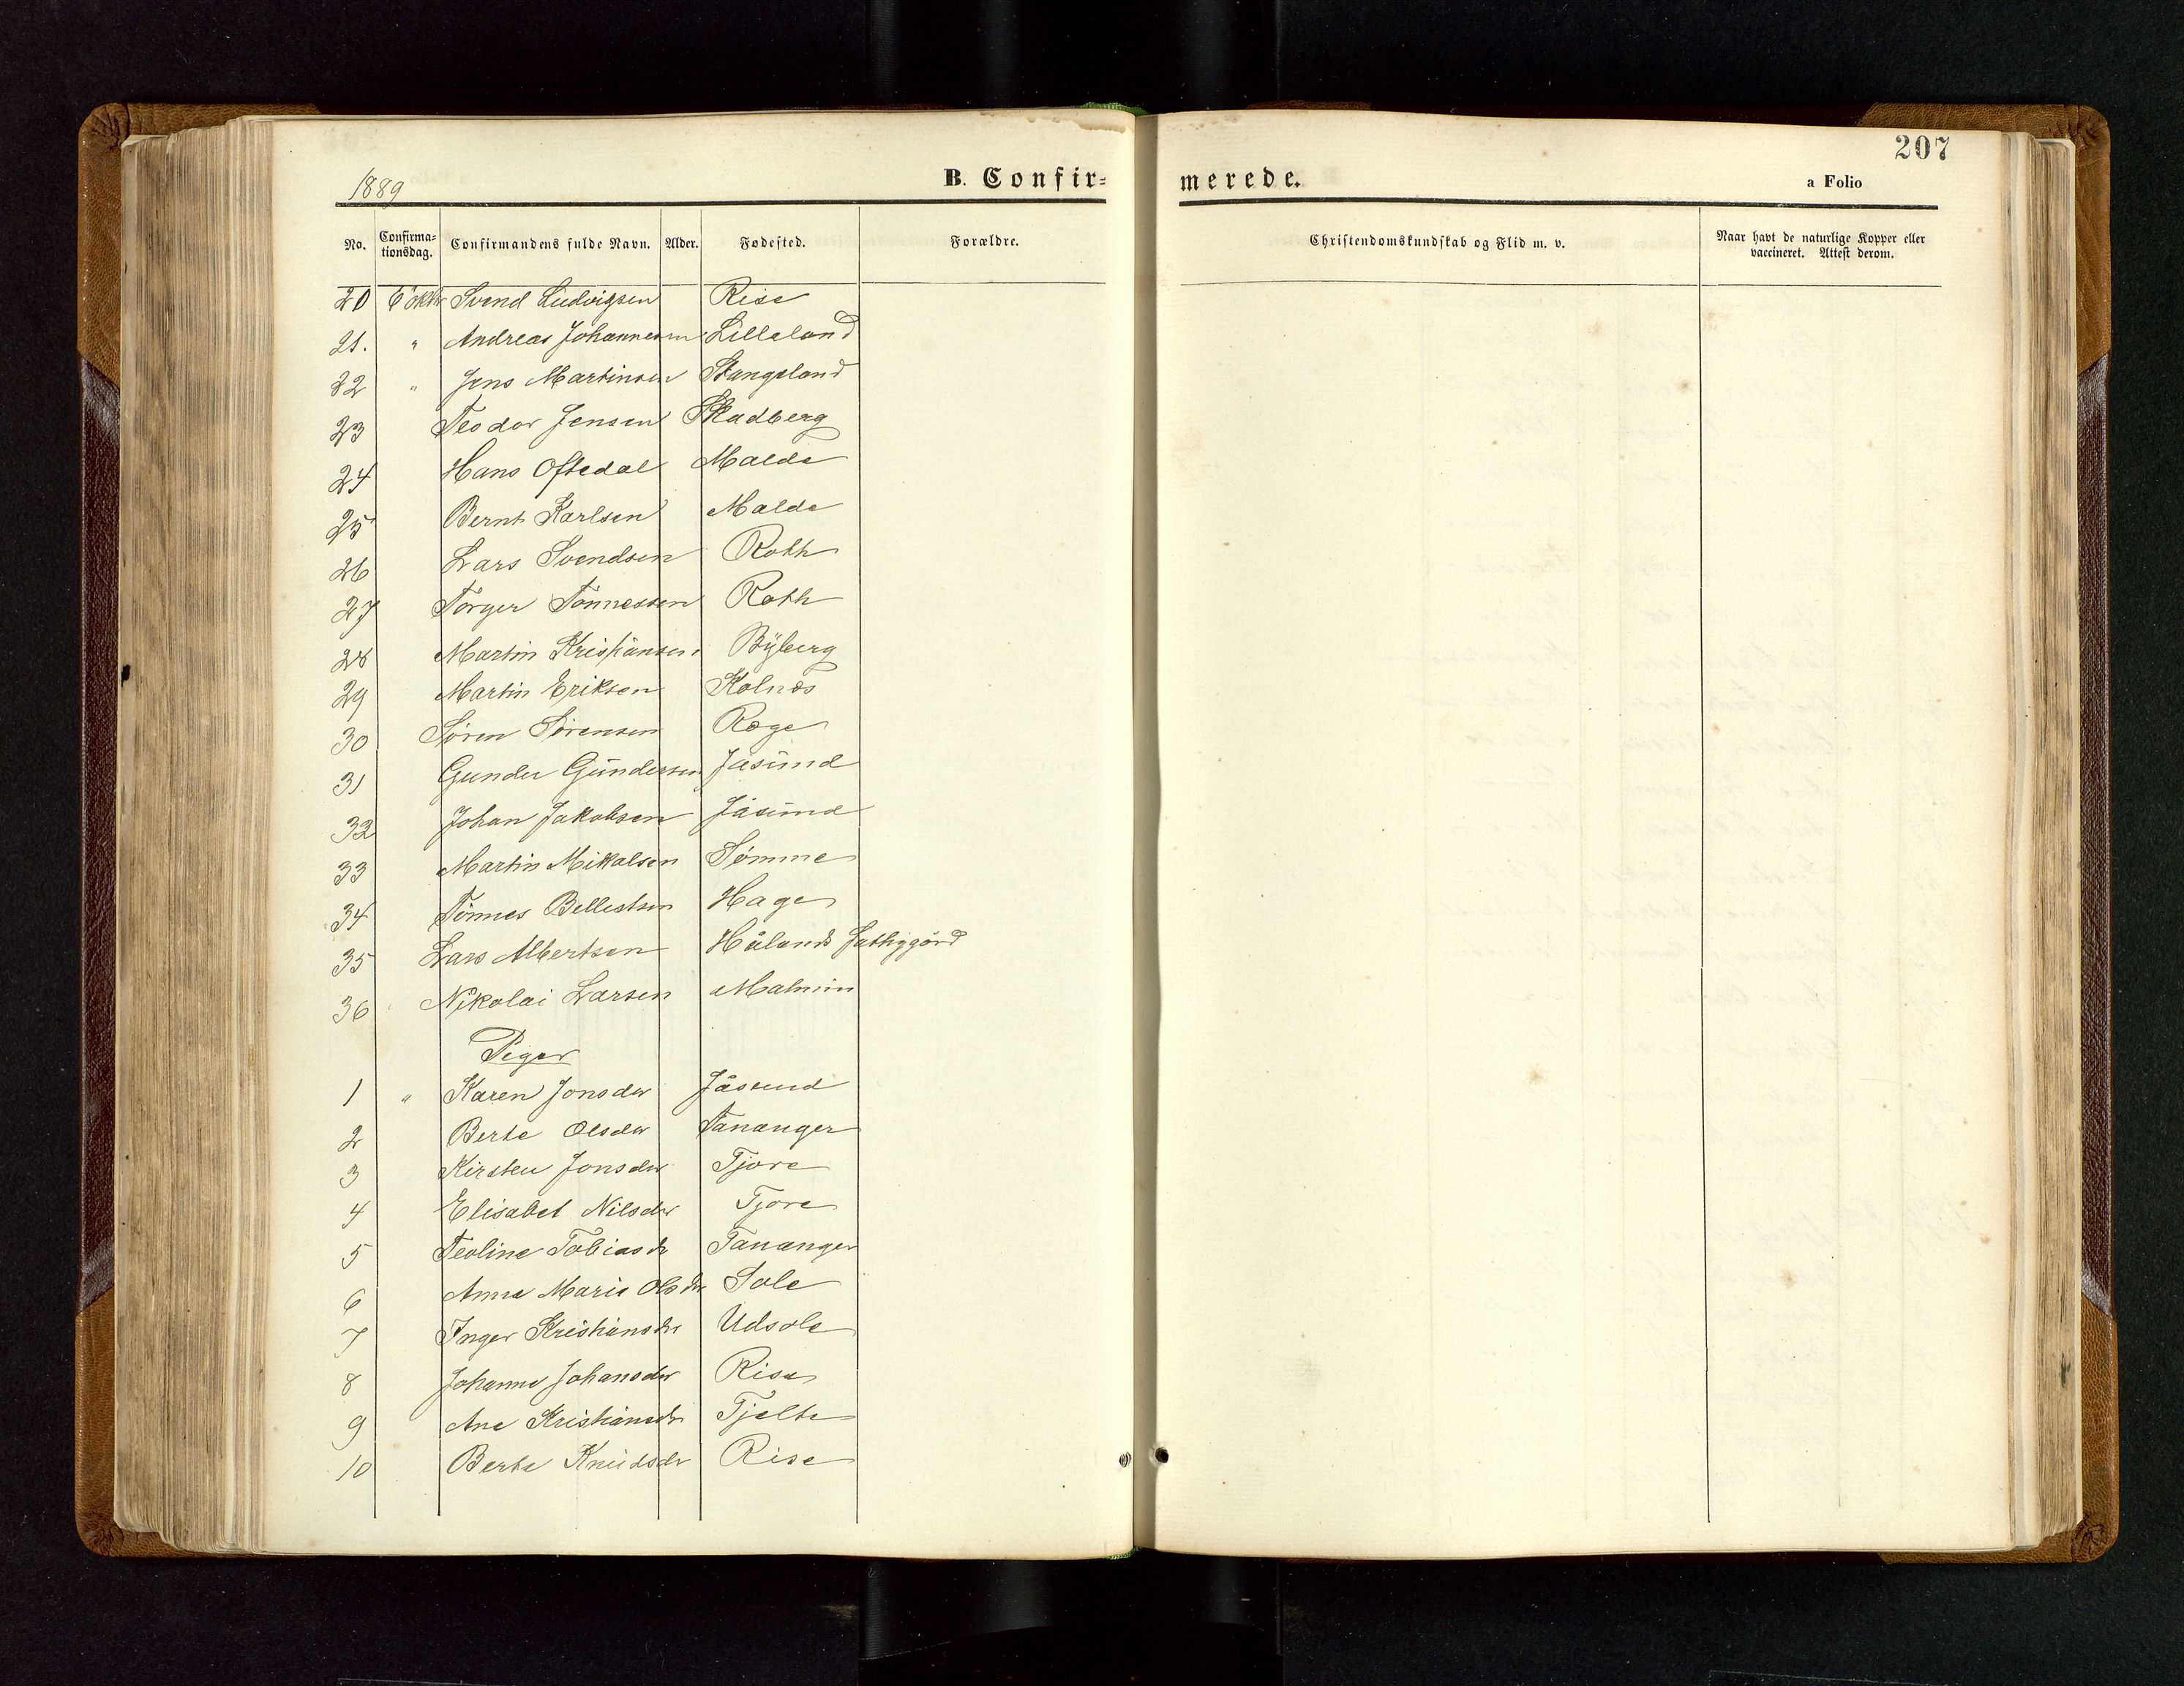 207
1889 B. Confirmerede. a Folio
No. Confirmationsdag. Confirmandens fulde Navn. Alder. Fødested. Forældre. Christendomskundskab og Flid m. v. Naar havt de naturlige Kopper eller vaccineret. Attest derom.
20 6 oktbr Svend Ludvigsen Rise
21. " Andreas Johannesen Lilleland
22 " Jens Martinsen Stangeland
23 Teodor Jensen Skadberg
24 Hans Oftedal Malde
25 Bernt Karlsen Malde
26 Lars Svendsen Roth
27 Torger Tønnessen Roth
28 Martin Kristiansen Byberg
29 Martin Eriksen Kolnæs
30 Søren Sørensen Ræge
31 Gunder Gundersen Jåsund
32 Johan Jakobsen Jåsund
33 Martin Mikalsen Sømme
34 Tønnes Bellestsen Haga
35 Lars Albertsen Hålands fattiggård
36 Nikolai Larsen Malmim
Piger
1 " Karen Jonsdtr Jåsund
2 Berte Olsdtr Tananger
3 Kirsten Jonsdtr Tjore
4 Elisabet Nilsdtr Tjore
5 Teoline Tobiasdr Tananger
6 Anna Marie Olsdtr Sole
7 Inger Kristiansdr Udsole
8 Johanne Johansdtr Risa
9 Ane Kristiansdr Tjelta
10 Berta Knudsdr Rise